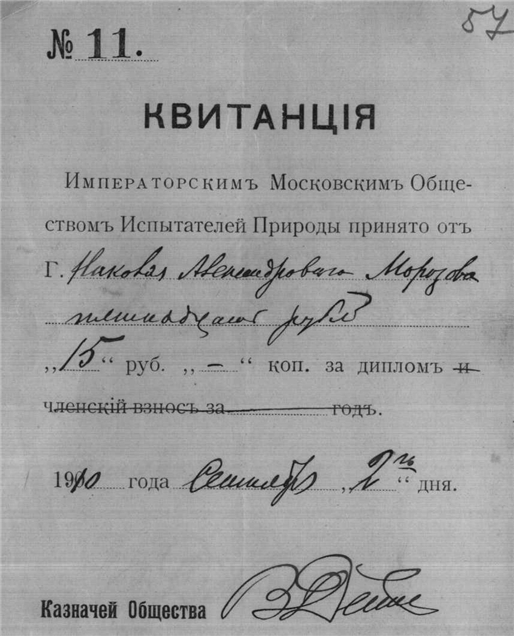 57
№ 11.
КВИТАНЦІЯ
Императорскимъ Московскимъ Обще-
ствомъ Испытателей Природы принято отъ
Г. Николая Александровича Морозова
пятнадцать рублей
„15“ руб. „–“ коп. за дипломъ и
членскій взносъ за годъ.
1910 года Сентября „2го“ дня.
Казначей Общества